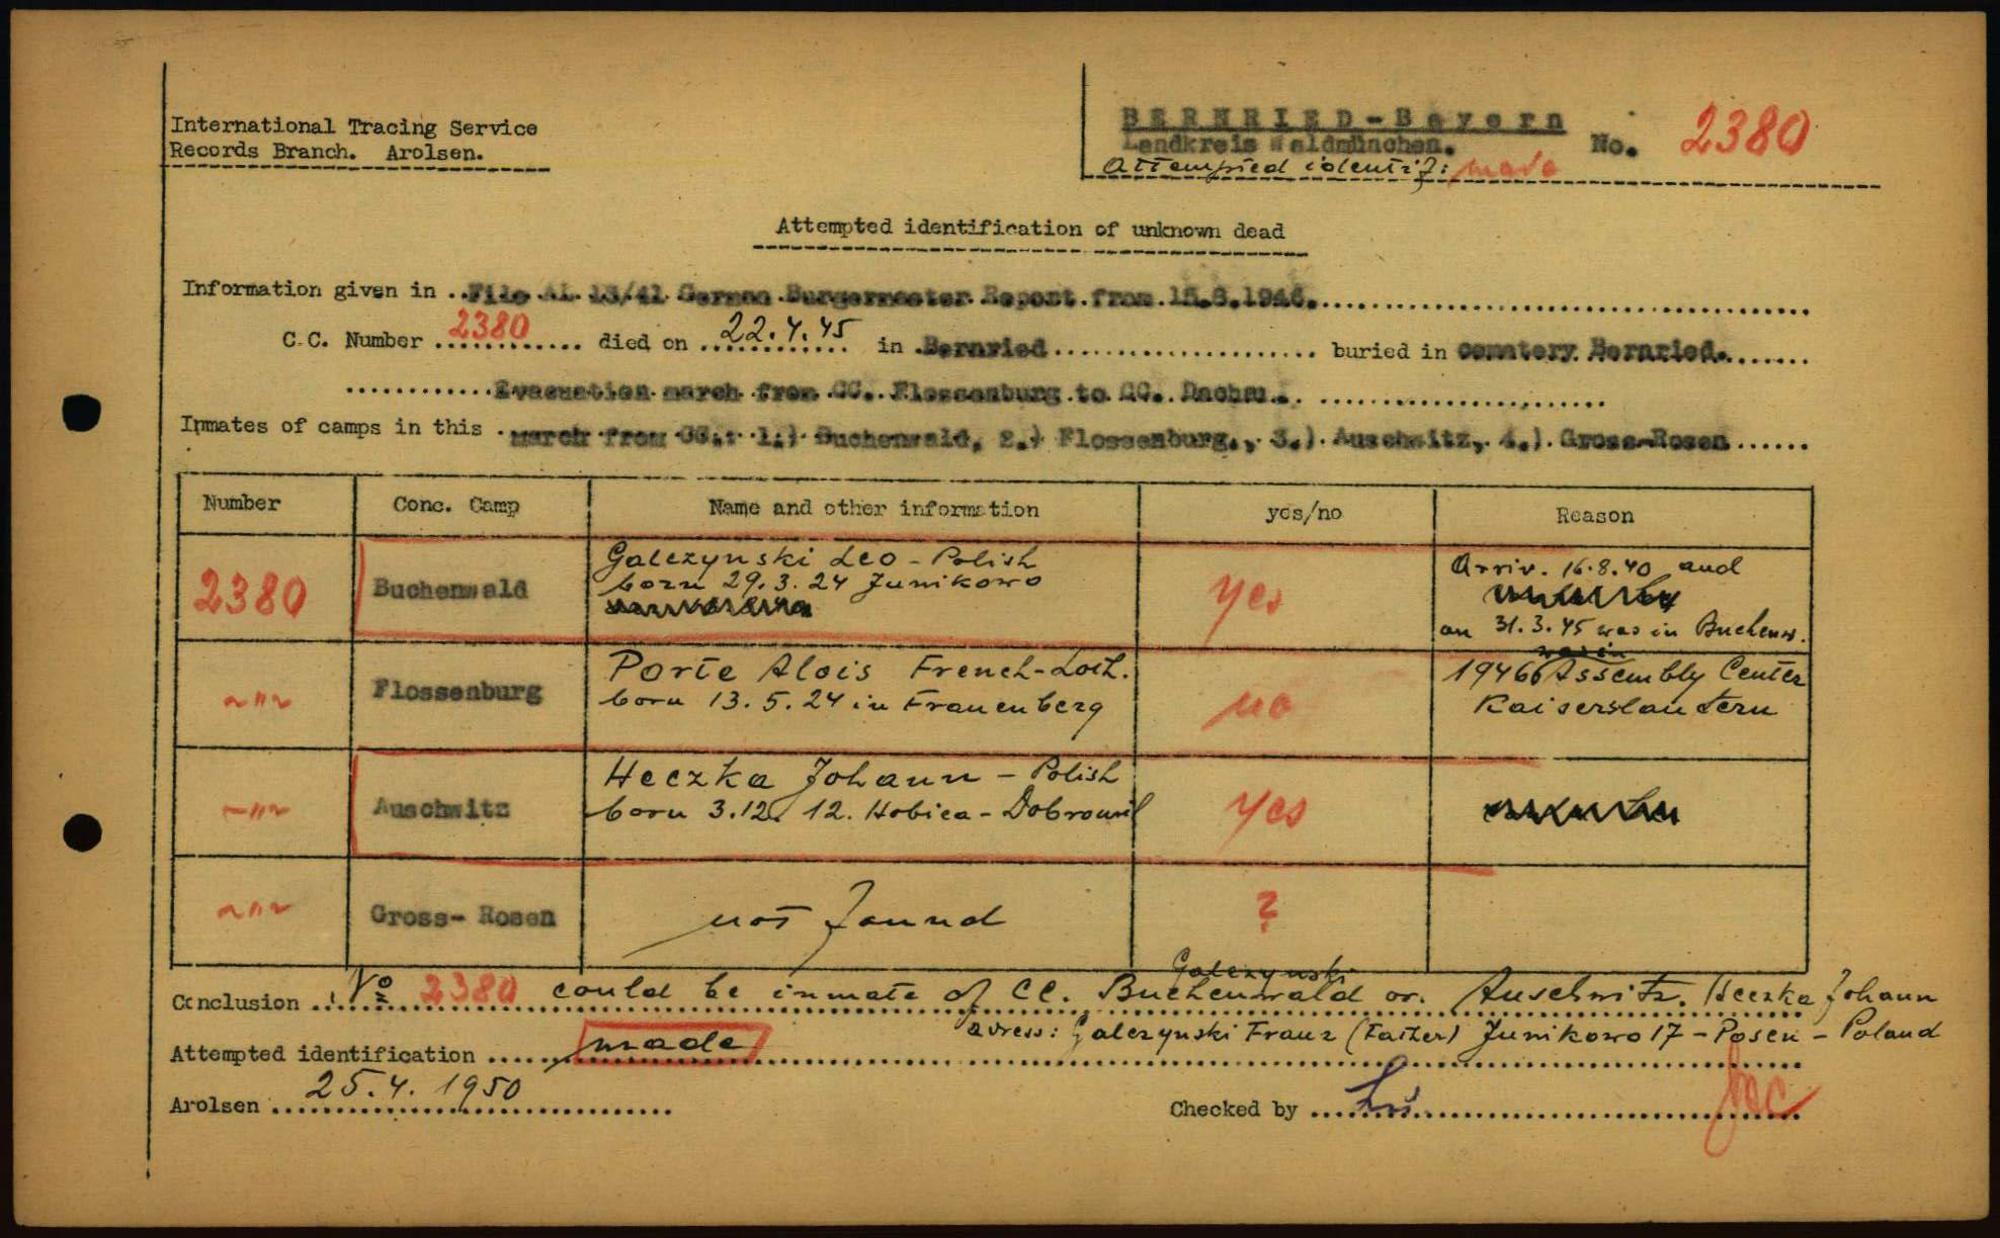 International Tracing Service
Records Branch. Arolsen.
BERNRIED-Bayern
Landkreis Waldmünchen. No. 2380
Attempted identif: made
Attempted identification of unknown dead
Information given in ..File AL 13/41 German Burgermester Report from 15.6.1946.
C.C. Number 2380 died on 22.4.45 in Bernried buried in cematery Bernried.
Evacuation march from CC. Flossenburg to CC. Dachau.
Inmates of camps in this march from CC.: 1.) Buchenwald, 2.) Flossenburg., 3.) Auschwitz, 4.) Gross-Rosen
Number Conc. Camp Name and other information yes/no Reason
2380 Buchenwald Galczynski Leo - Polish born 29.3.24 Junikowo yes Arriv. 16.8.40 and on 31.3.45 was in Buchenw.
-"- Flossenburg Porte Alois French-Loth. born 13.5.24 in Frauenberg no 1946 was in Assembly Center Kaiserslautern
-"- Auschwitz Heczka Johann - Polish born 3.12.12. yes
-"- Gross- Rosen not found ?
Galczynski
Conclusion No 2380 could be inmate of CC. Buchenwald or. Auschwitz. Heczka Johann
adress: Galczynski Franz (Father) Junikowo 17 - Posen - Poland
Attempted identification made
Arolsen 25.4.1950
Checked by